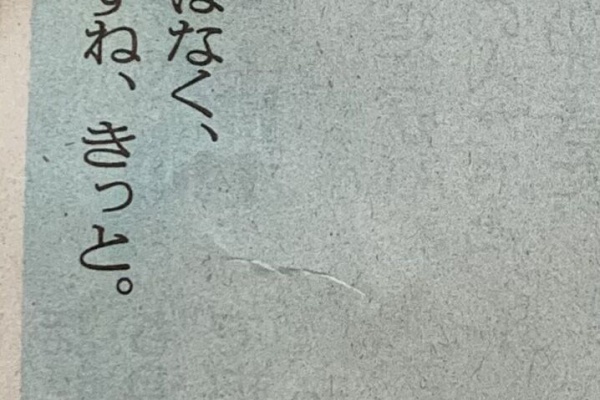 はなく、
ね、きっと。